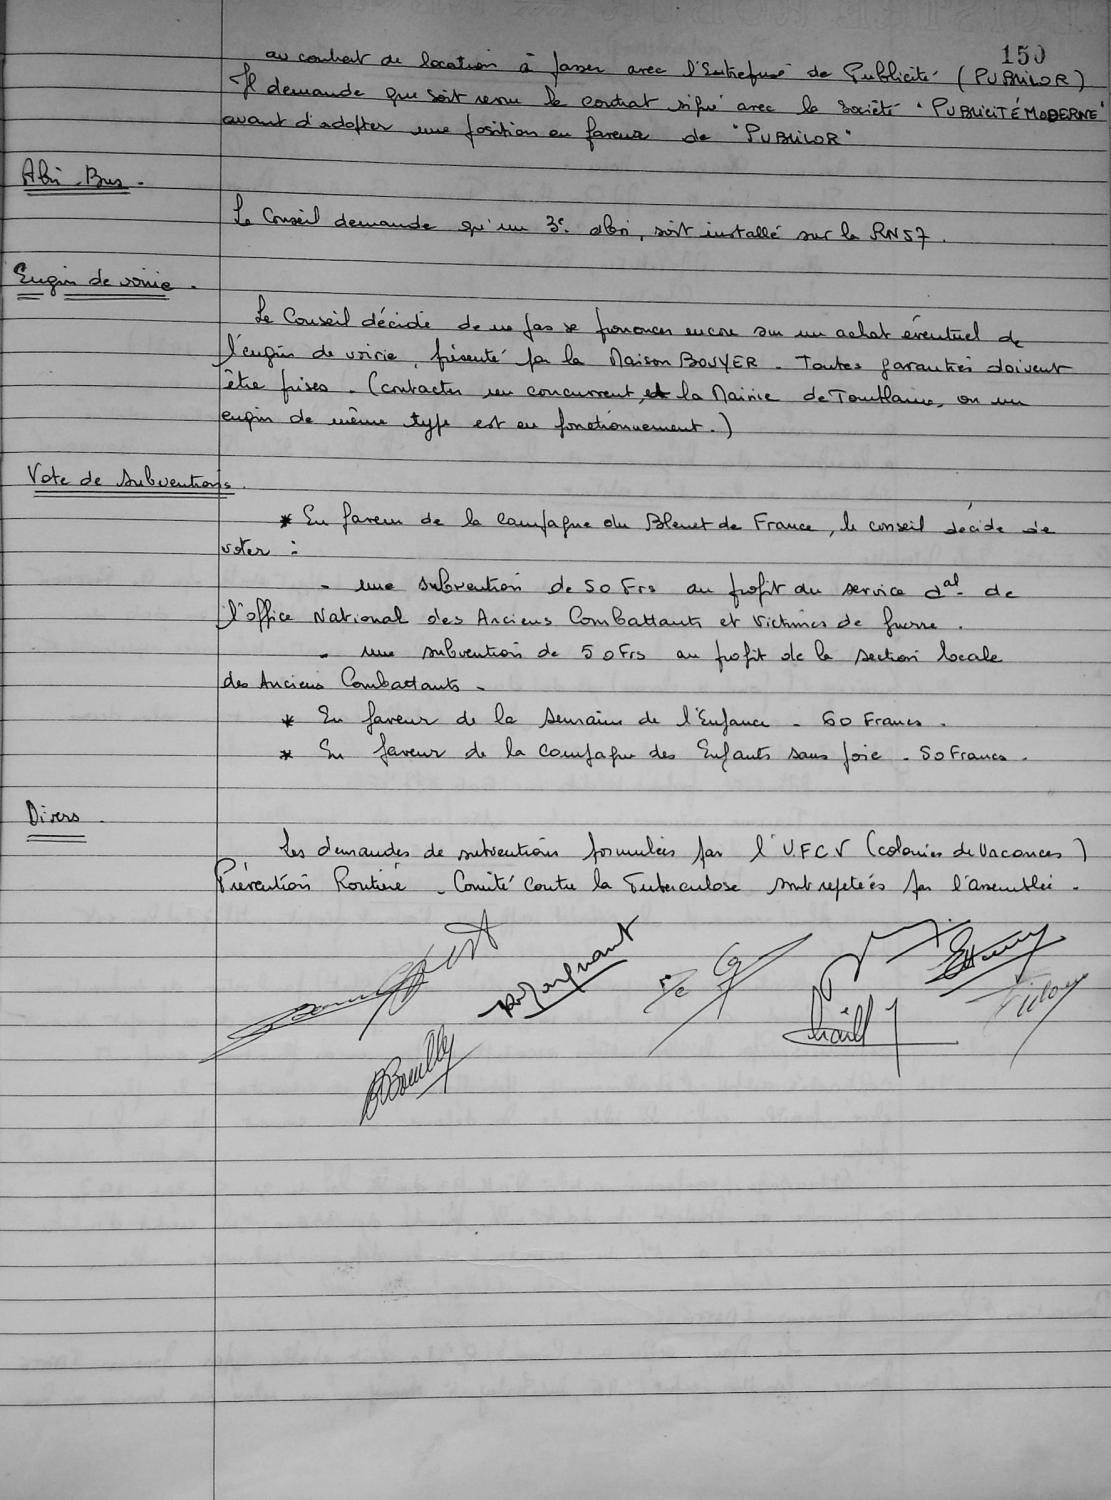 150
au contrat de location à passer avec l'Entreprise de Publicité (PUBLILOR)
Il demande que soit revu le contrat signé avec la Société "PUBLICITÉ MODERNE"
avant d'adopter une position en faveur de "PUBLILOR"
Abri-Bus.
Le Conseil demande qu'un 3e abri, soit installé sur la RN57.
Engin de voirie.
Le Conseil décide de ne pas se prononcer encore sur un achat éventuel de
l'engin de voirie, présenté par la Maison BOUYER. Toutes garanties doivent
être prises. (contacter un concurrent, et la Mairie de Tomblaine, où un
engin de même type est en fonctionnement.)
Vote de subventions.
* En faveur de la campagne du Bleuet de France, le conseil décide de
voter :
- une subvention de 50 Frs au profit du service dal de
l'office National des Anciens Combattants et Victimes de guerre.
- une subvention de 50 Frs au profit de la section locale
des Anciens Combattants.
* En faveur de la Semaine de l'Enfance - 60 Francs.
* En faveur de la campagne des Enfants sans joie - 50 Francs.
Divers.
Les demandes de subventions formulées par l'U.F.C.V (colonies de Vacances)
Prévention Routière - Comité contre la Tuberculose sont rejetées par l'assemblée.
Bouilly